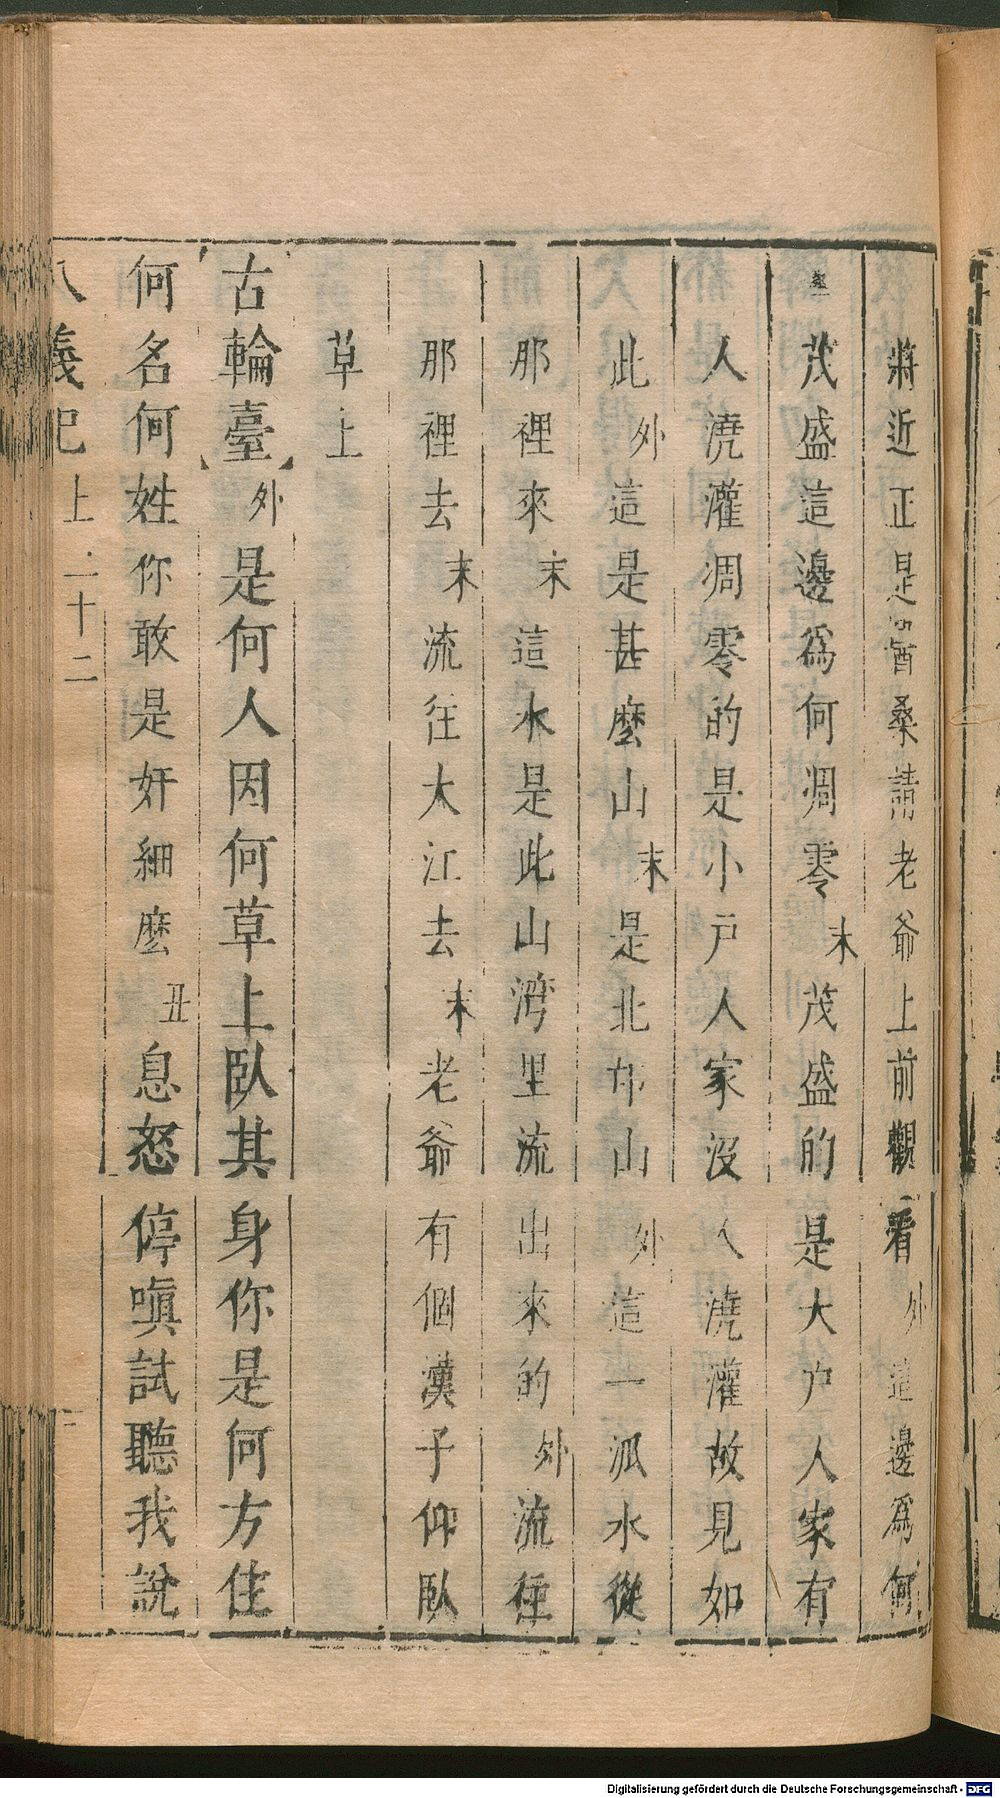 將近正是酋桑請老爺上前觀看外這邊爲何
茂盛這邊爲何凋零末茂盛的是大户人家有
人澆灌凋零的是小戸人家沒人澆灌故見如
此外這是甚麽山末是北邙山外這一派水從
那裡來末這水是此山湾里流出來的外流往
那裡去末流往大江去末老爺有個漢子仰臥
草上
古輪臺外是何人因何草上臥其身你是何方住
何名何姓你敢是奸細麽丑息怒停嗔試聽我說
八義記 上 二十二
Digitalisierung gefördert durch die Deutsche Forschungsgemeinschaft - DFG